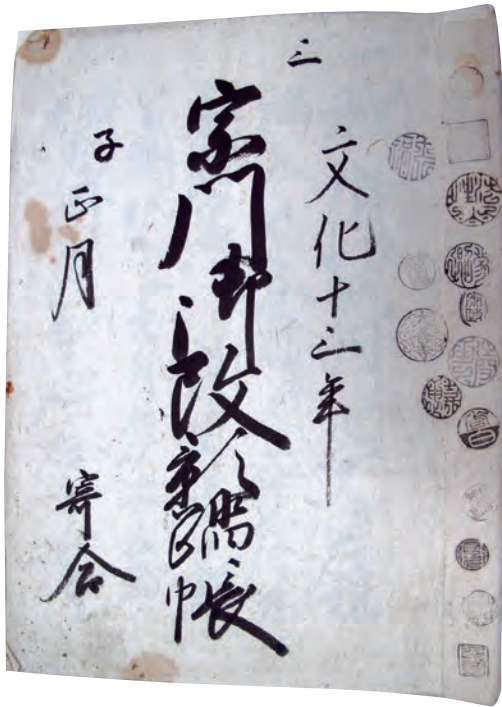 三
文化十三年
宗門御改影踏帳
子正月
寄合